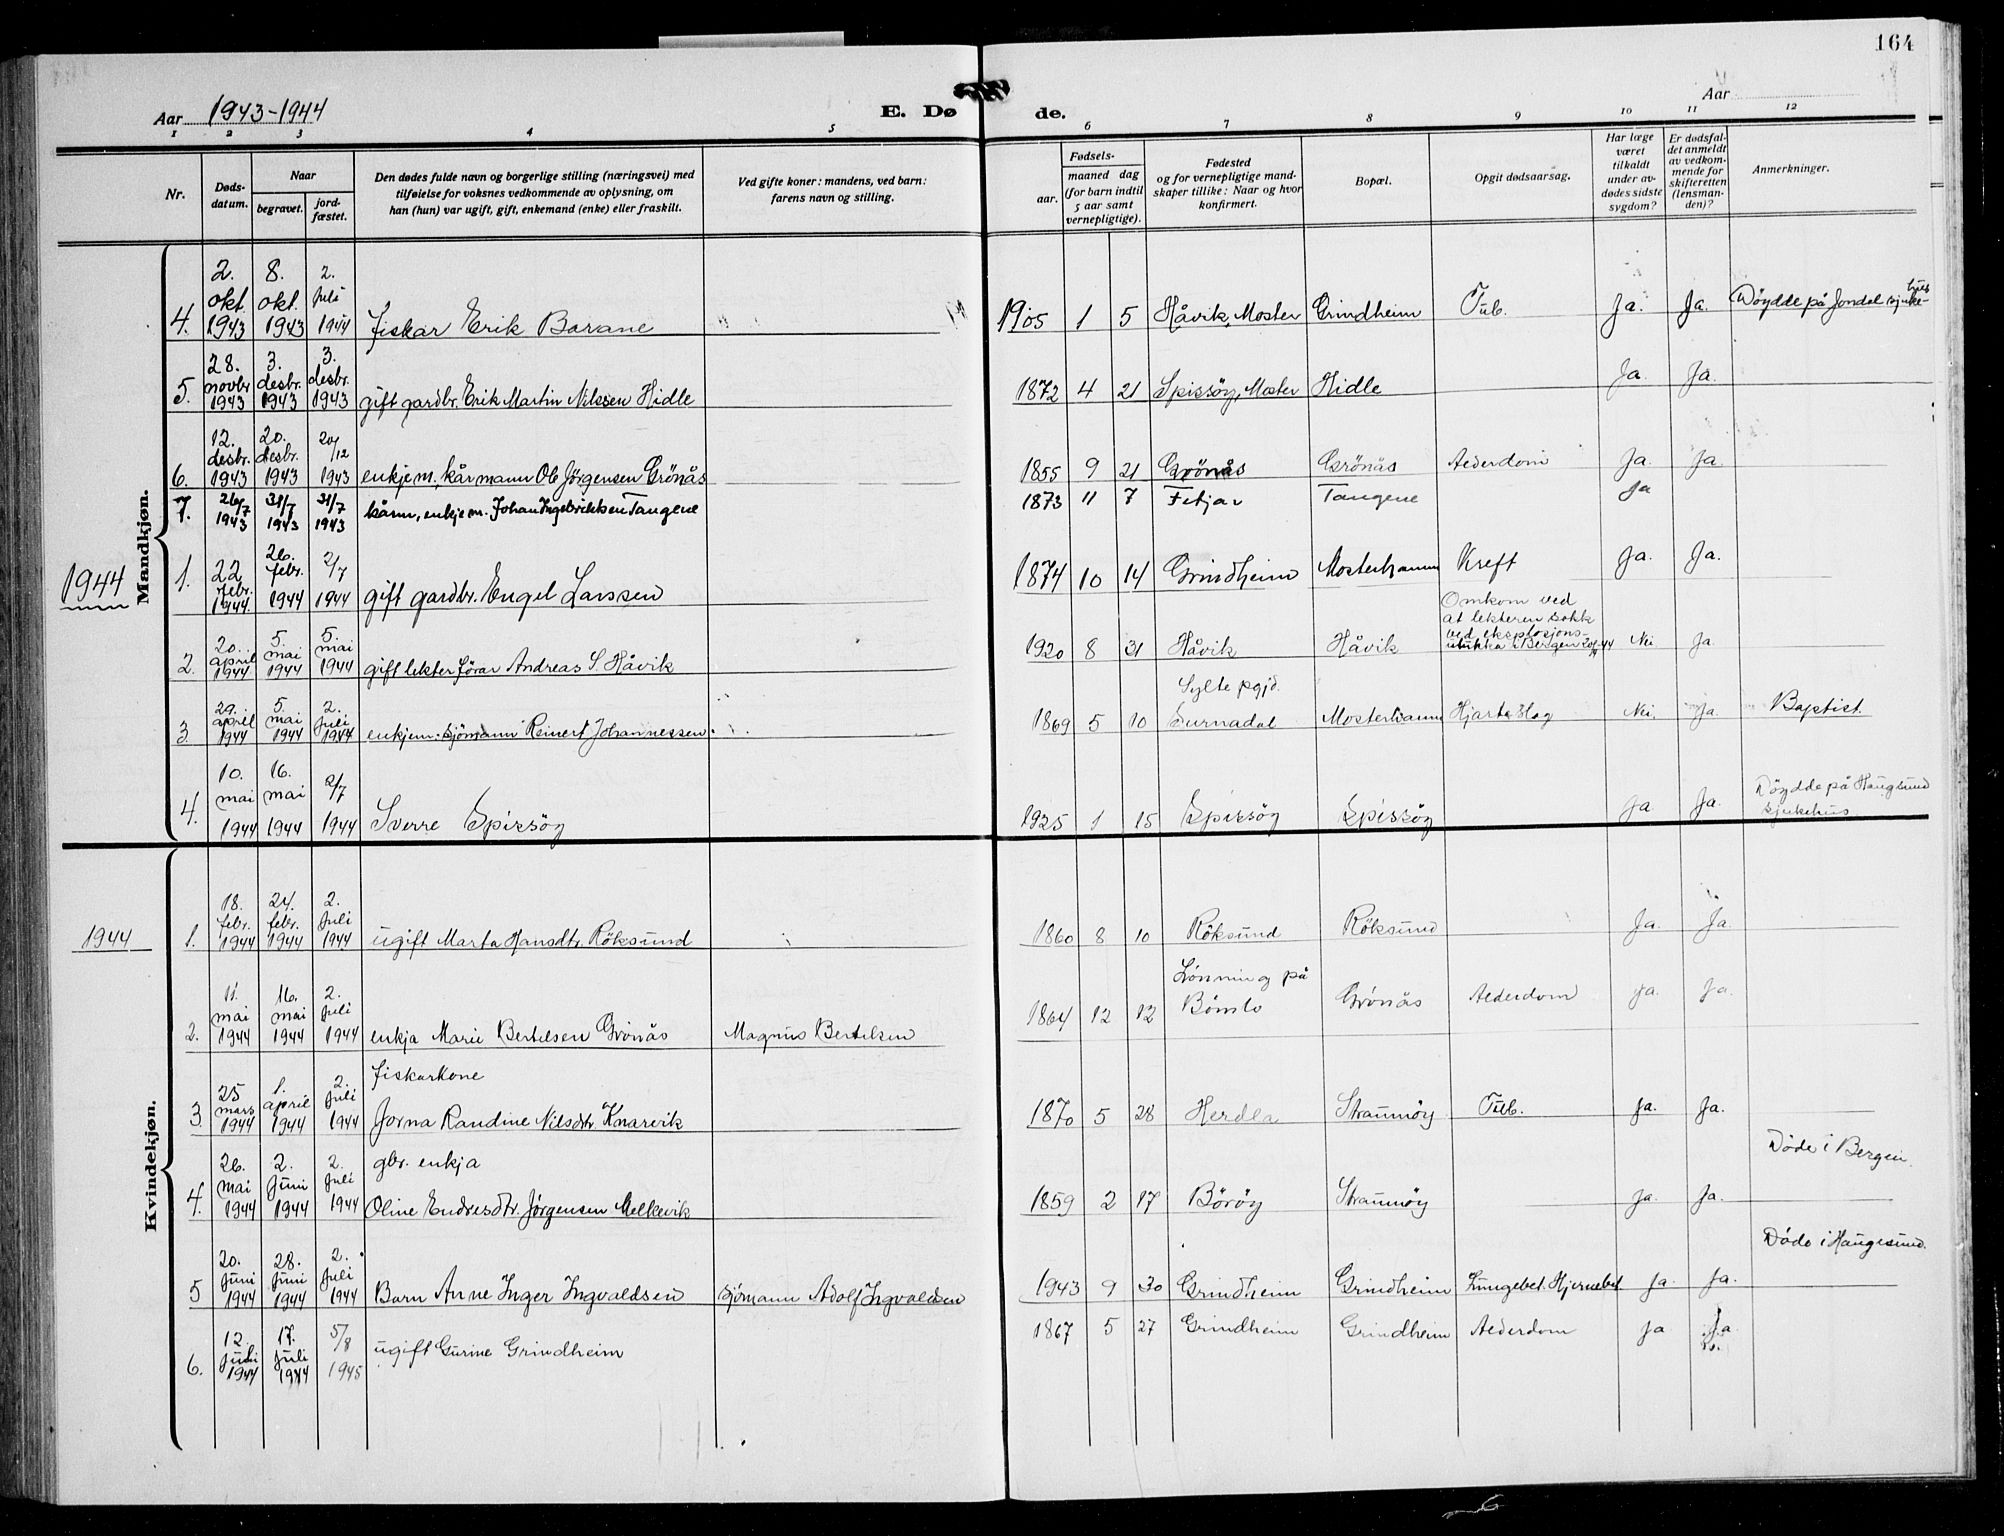 164
Aar 1943-1944 E. Døde. Aar
1 2 3 4 5 6 7 8 9 10 11 12
Nr. Døds-datum. Naar begravet. jord-fæstet. Den dødes fulde navn og borgerlige stilling (næringsvei) med tilføielse for voksnes vedkommende av oplysning, om han (hun) var ugift, gift, enkemand (enke) eller fraskilt. Ved gifte koner: mandens, ved barn: farens navn og stilling. Fødsels- aar. maaned dag (for barn indtil 5 aar samt vernepligtige). Fødested og for vernepligtige mandskaper tillike: Naar og hvor konfirmert. Bopæl. Opgit dødsaarsag. Har læge været tilkaldt under avdødes sidste sygdom? Er dødsfaldet anmeldt av vedkommende for skifteretten (lensmanden)? Anmerkninger.
Mandkjøn.
4. 2. okt. 1943 8. okt. 1943 2. juli 1944 fiskar Erik Barane 1905 1 5 Håvik, Moster Grindheim Tub. Ja. Ja. Døydde på Jondal sjuke-hus
5. 28. novbr 1943 3. desbr. 1943 3. desbr. 1943 gift gardbr. Erik Martin Nilssen Hidle 1872 4 21 Spissøy, Moster Hidle Ja. Ja.
6. 12. desbr. 1943 20. desbr. 1943 20/12 1943 enkjem, kårmann Ole Jørgensen Grönås 1855 9 21 Grönås Grönås Alderdom Ja. Ja.
7. 26/7 1943 31/7 1943 31/7 1943 kårm, enkjem. Johan Ingebriktsen Tangene 1873 11 7 Fitjar Tangene Ja
1944
1. 22 febr. 1944 26. febr. 1944 2/7 1944 gift gardbr. Engel Larssen 1874 10 14 Grindheim Mosterhamn Kreft Ja. Ja.
2. 20. april 1944 5. mai 1944 5. mai 1944 gift lekterförar Andreas S. Håvik 1920 8 31 Håvik Håvik Omkom ved at lekteren sokk ved eksplosjons-ulukka i Bergen 20/4-44 Nei Ja.
3. 29. april 1944 5. mai 1944 2. juli 1944 enkjem. sjömann Reinert Johannessen. 1869 5 10 Sylte pgjd. Surnadal Mosterhamn Hjarteslag Nei. Ja. Baptist.
4. 10. mai 1944 16. mai 1944 2/7 1944 Sverre Spissöy 1925 1 15 Spissöy Spissöy Ja. Ja. Döydde på Haugsund sjukehus
Kvindekjøn.
1944
1. 18. febr. 1944 24. febr. 1944 2. juli 1944 ugift Marta Hansdtr. Röksund 1860 8 10 Röksund Röksund Ja. Ja.
2. 11. mai 1944 16. mai 1944 2. juli 1944 enkja Marie Bertelsen Grönås Magnus Bertelsen 1864 12 12 Lönning på Bömlo Grönås Alderdom Ja. Ja.
3. 25 mars 1944 1. april 1944 2. juli 1944 fiskarkone Jorna Randine Nilsdtr. Knarvik 1870 5 28 Herdla Straumöy Tub. Ja. Ja.
4. 26. mai 1944 2. juni 1944 2. juli 1944 gbr. enkja Oline Endresdtr. Jørgensen Melkevik 1859 2 17 Böröy Straumöy Ja. Ja. Döde i Bergen.
5 20. juni 1944 28. juni 1944 2. juli 1944 Barn Anne Inger Ingvaldsen sjömann Adolf Ingvaldsen 1943 9 30 Grindheim Grindheim Lungebet. Hjernebet. Ja. Ja. Döde i Haugesund.
6. 12. juli 1944 17. juli 1944 5/8 1945 ugift Gurine Grindheim 1867 5 27 Grindheim Grindheim Alderdom Ja Ja.